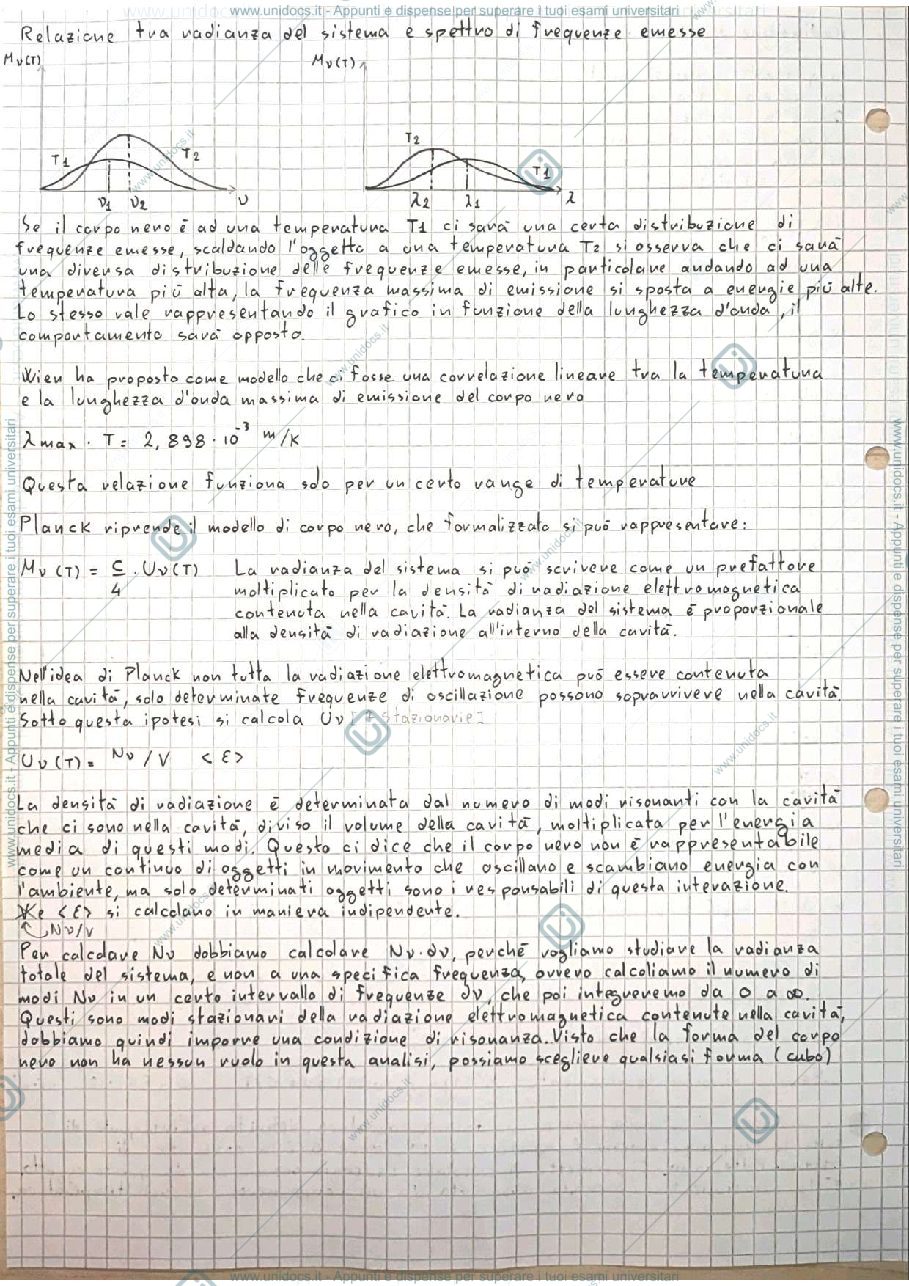 www.unidocs.it - Appunti e dispense per superare i tuoi esami universitari
Relazione tra radianza del sistema e spettro di frequenze emesse
Mν(T)
Mν(T)
T1
T2
ν1 ν2
ν
T2
T1
λ2 λ1
λ
Se il corpo nero è ad una temperatura T1 ci sarà una certa distribuzione di
frequenze emesse, scaldando l'oggetto a una temperatura T2 si osserva che ci sarà
una diversa distribuzione delle frequenze emesse, in particolare andando ad una
temperatura più alta, la frequenza massima di emissione si sposta a energie più alte.
Lo stesso vale rappresentando il grafico in funzione della lunghezza d'onda, il
comportamento sarà opposto.
Wien ha proposto come modello che ci fosse una correlazione lineare tra la temperatura
e la lunghezza d'onda massima di emissione del corpo nero
λmax · T = 2,898 · 10⁻³ m/K
Questa relazione funziona solo per un certo range di temperature
Planck riprende il modello di corpo nero, che formalizzato si può rappresentare:
Mν(T) = c/4 · Uν(T) La radianza del sistema si può scrivere come un prefattore
moltiplicato per la densità di radiazione elettromagnetica
contenuta nella cavità. La radianza del sistema è proporzionale
alla densità di radiazione all'interno della cavità.
Nell'idea di Planck non tutta la radiazione elettromagnetica può essere contenuta
nella cavità, solo determinate frequenze di oscillazione possono sopravvivere nella cavità.
Sotto questa ipotesi si calcola Uν stazionarie
Uν(T) = Nν/V <ε>
La densità di radiazione è determinata dal numero di modi risonanti con la cavità
che ci sono nella cavità, diviso il volume della cavità, moltiplicata per l'energia
media di questi modi. Questo ci dice che il corpo nero non è rappresentabile
come un continuo di oggetti in movimento che oscillano e scambiano energia con
l'ambiente, ma solo determinati oggetti sono i responsabili di questa interazione.
e <ε> si calcolano in maniera indipendente.
Nν/V
Per calcolare Nν dobbiamo calcolare Nν·dν, perché vogliamo studiare la radianza
totale del sistema, e non a una specifica frequenza, ovvero calcoliamo il numero di
modi Nν in un certo intervallo di frequenze dν, che poi integreremo da 0 a ∞.
Questi sono modi stazionari della radiazione elettromagnetica contenute nella cavità,
dobbiamo quindi imporre una condizione di risonanza. Visto che la forma del corpo
nero non ha nessun ruolo in questa analisi, possiamo scegliere qualsiasi forma (cubo)
www.unidocs.it - Appunti e dispense per superare i tuoi esami universitari